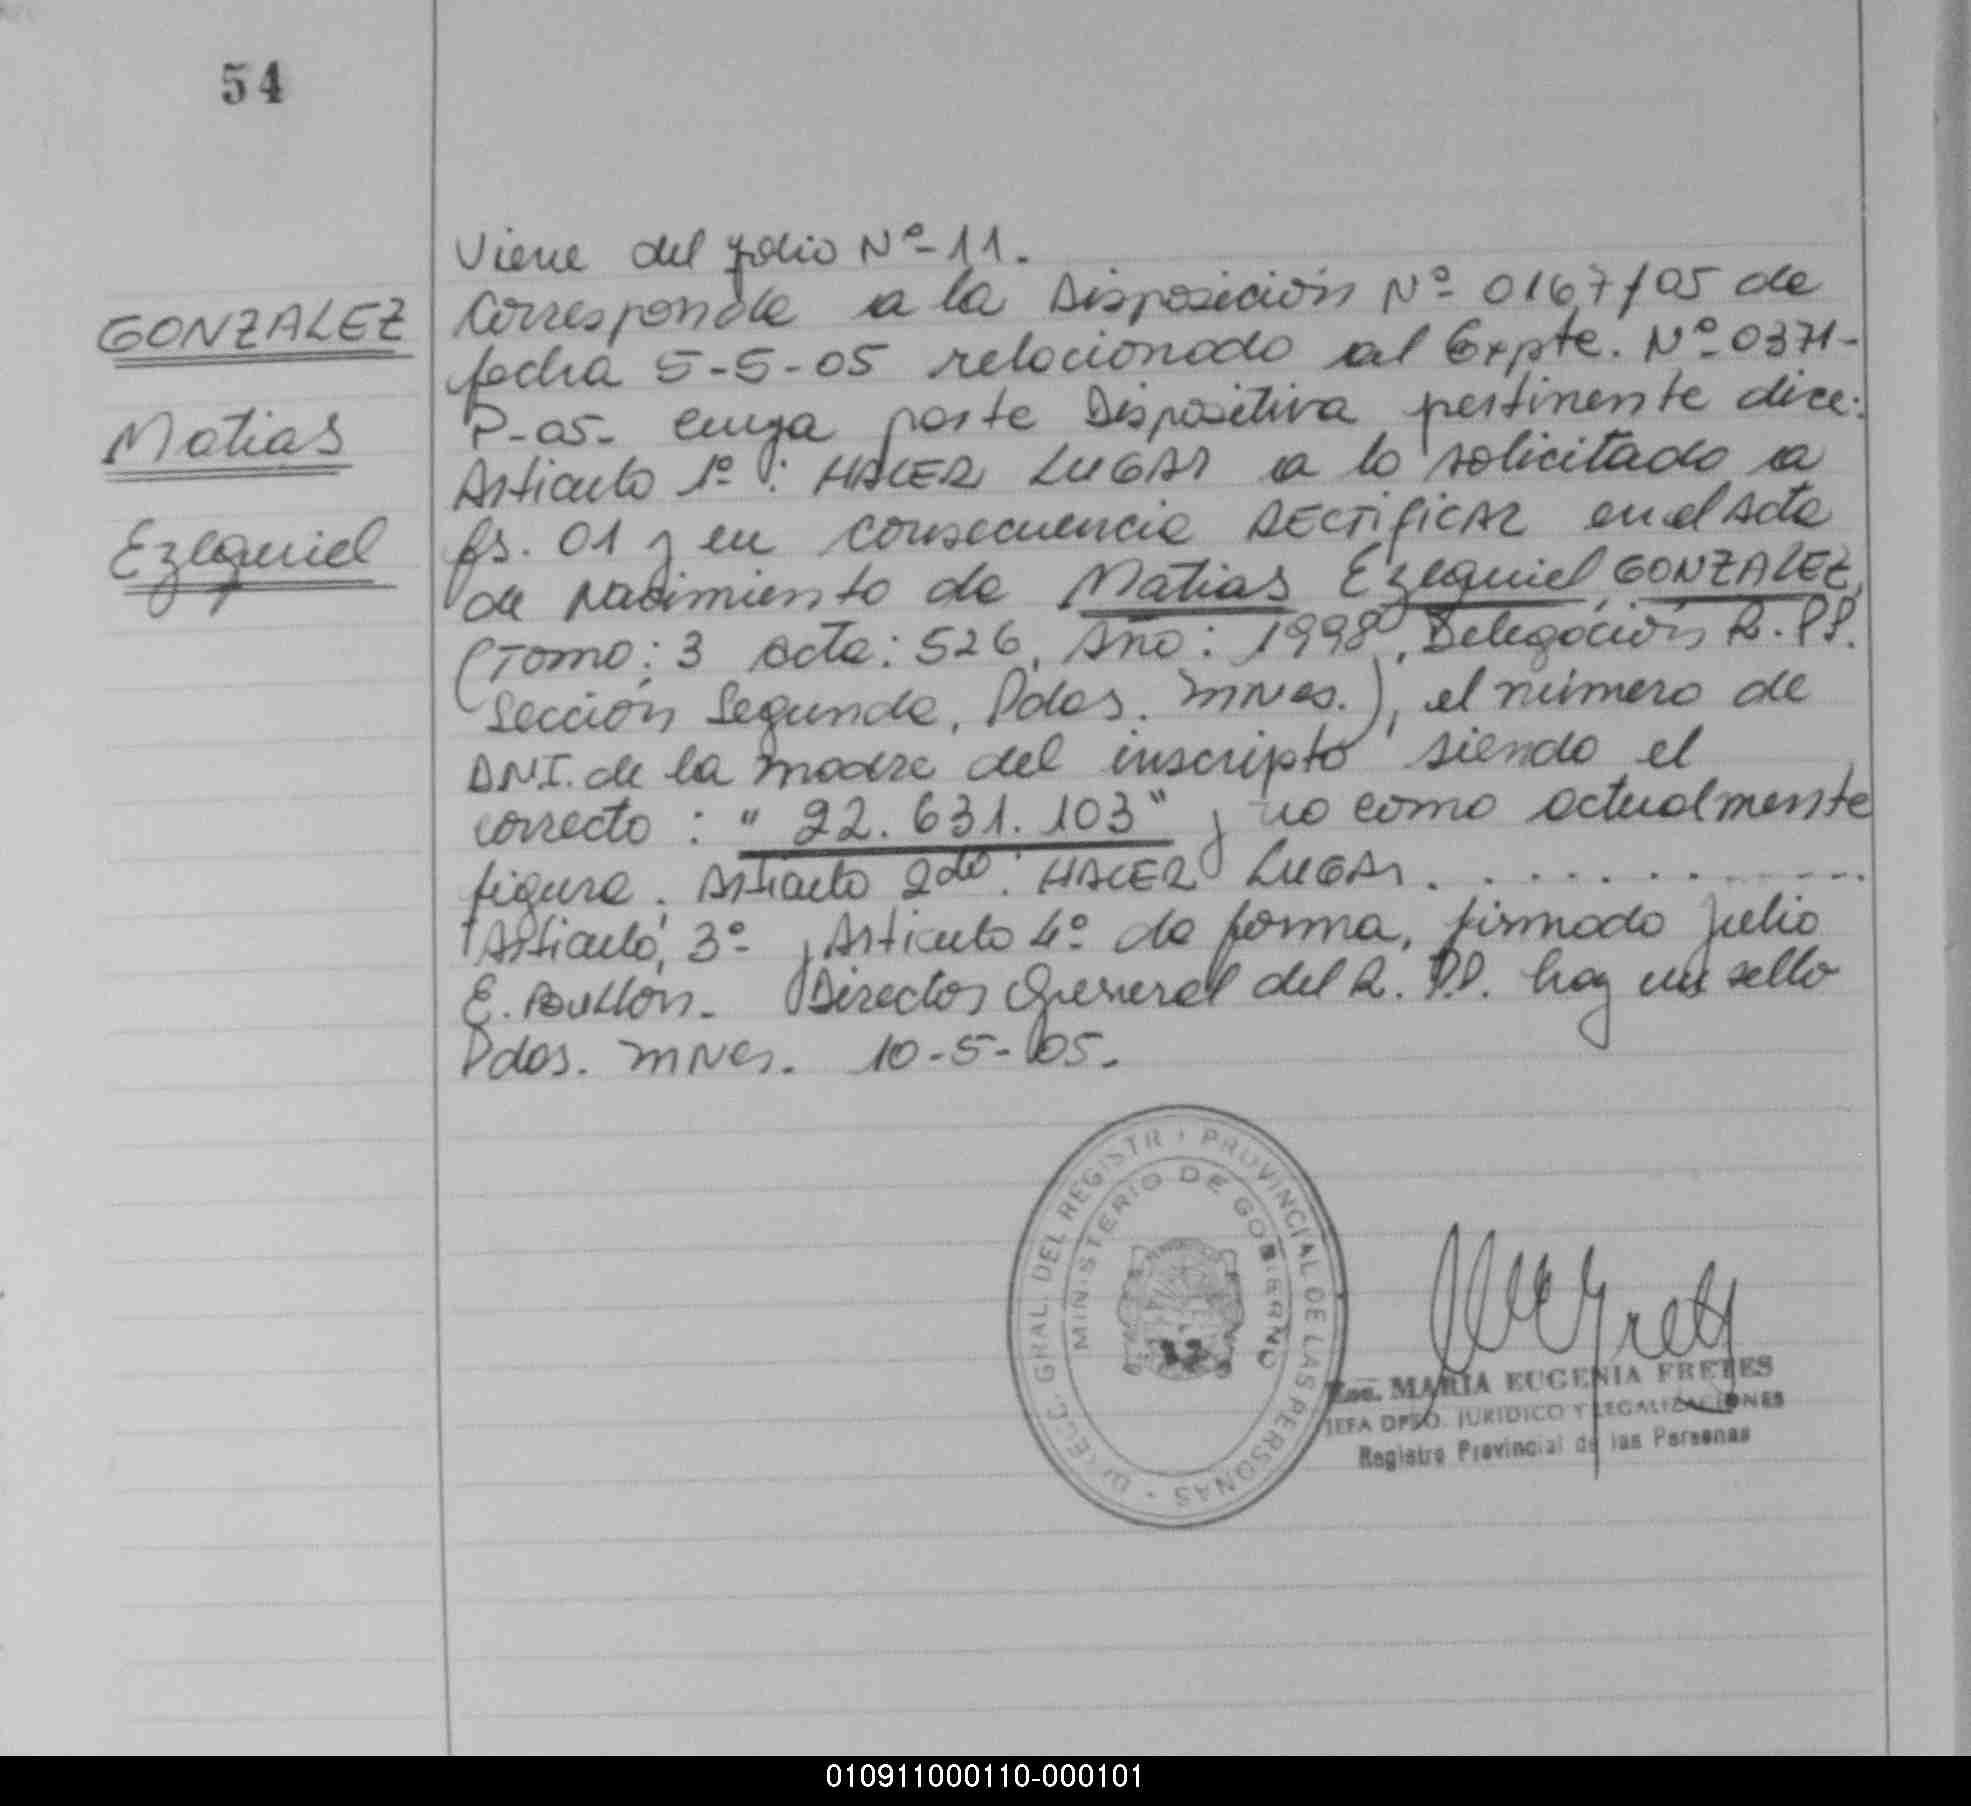 54
GONZALEZ
Matias
Ezequiel
Viene del folio Nº-11.
Corresponde a la Disposición Nº 0167/05 de
fecha 5-5-05 relacionado al Expte. Nº 0371-
P-05- cuya parte Dispositiva pertinente dice:
Articulo 1º: HACER LUGAR a lo solicitado a
fs. 01 y en consecuencia RECTIFICAR en el Acta
de Nacimiento de Matias Ezequiel GONZALEZ,
(Tomo: 3 Acta: 526, Año: 1998, Delegación R.PP.
Sección Segunda, Pdas. MNes.), el número de
DNI. de la madre del inscripto siendo el
correcto: "22.631.103" y no como actualmente
figura. Articulo 2do: HACER LUGAR. . . . . . . . . . . . .
Articulo, 3º y Articulo 4º de forma, firmado Julio
E. Director General del R. P.P. hay un sello
Pdas. MNes. 10-5-05.
DIRECC. GRAL. DEL REGISTR PROVINCIAL DE LAS PERSONAS
MINISTERIO DE GOBIERNO
Esc. MARIA EUGENIA FRETES
JEFA DPTO. JURIDICO Y LEGALIZACIONES
Registro Provincial de las Personas
010911000110-000101